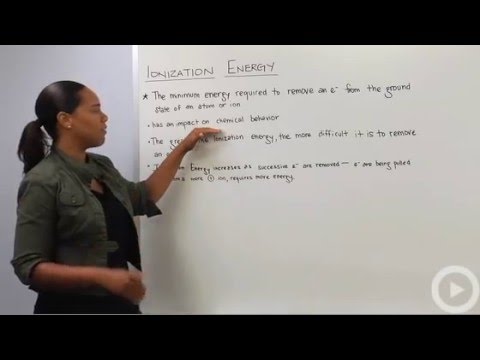 IONIZATION ENERGY
★ The minimum energy required to remove an e⁻ from the ground
state of an atom or ion
• has an impact on chemical behavior
• The ionization energy, the more difficult it is to remove
an
Energy increases as successive e⁻ are removed — e⁻ are being pulled
ion, requires more energy.